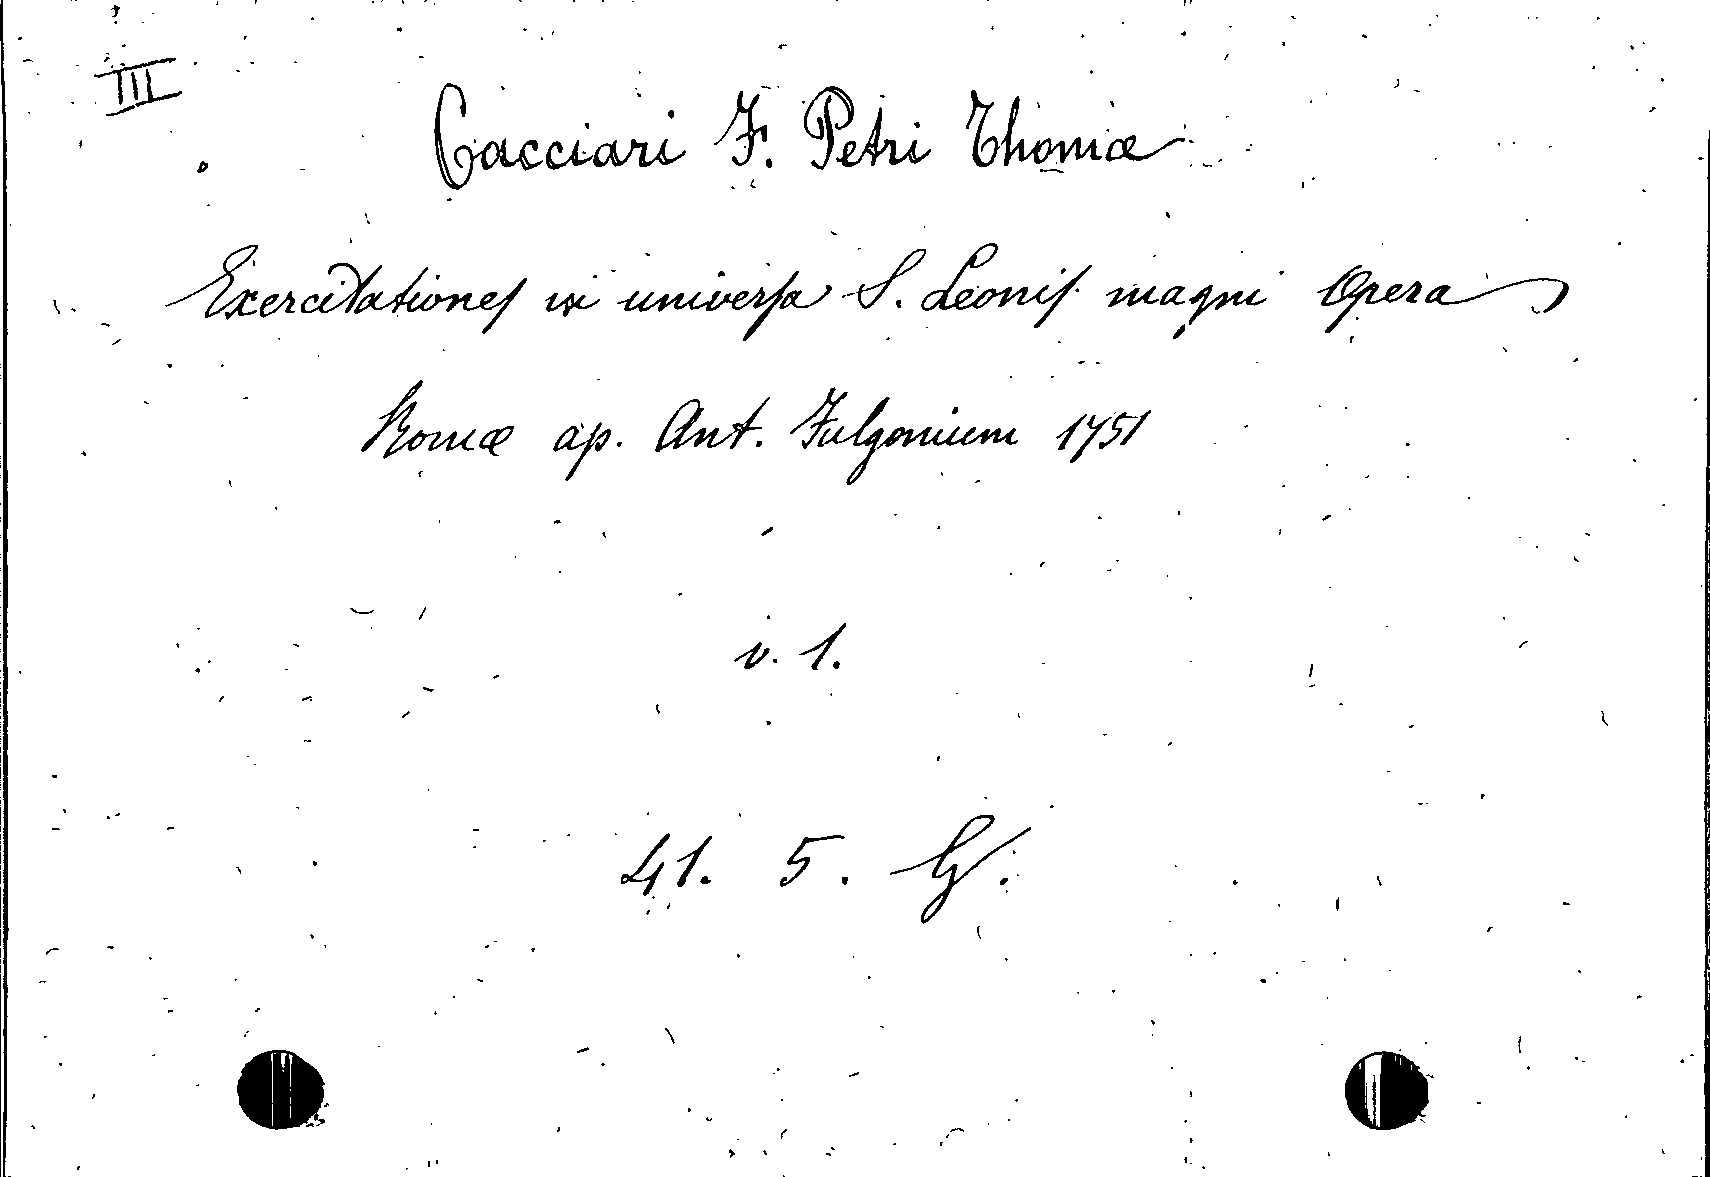 III
Cacciari F. Petri Thomæ
Exercitationes in universa S. Leonis magni Opera
Romæ ap. Ant. Fulgonium 1751
v. 1.
41. 5. G.